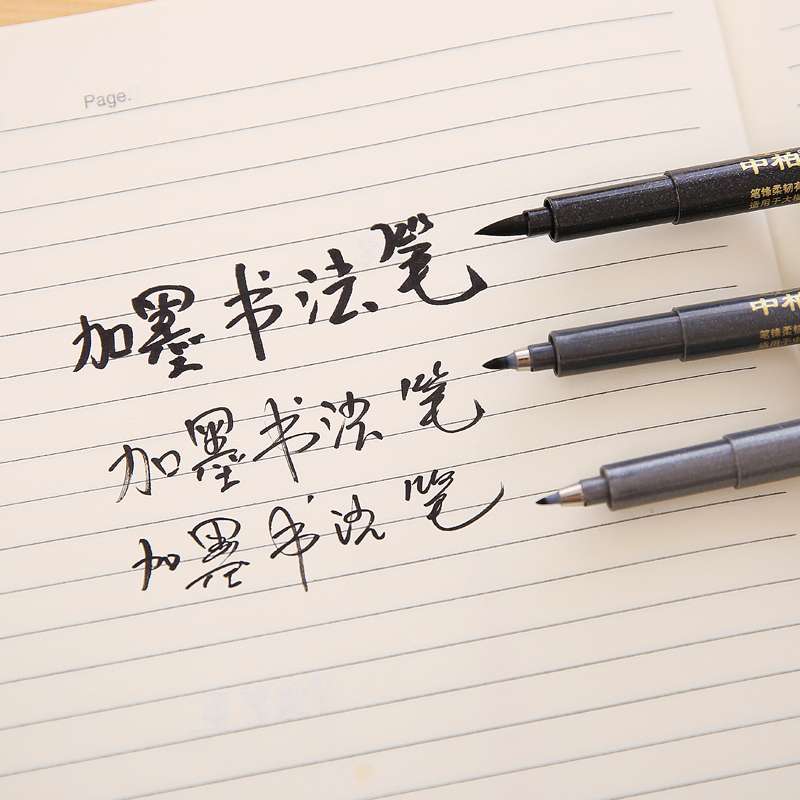 Page.
加墨书法笔
加墨书法笔
加墨书法笔
中柏
笔锋柔韧
适用于大
中柏
笔锋柔韧